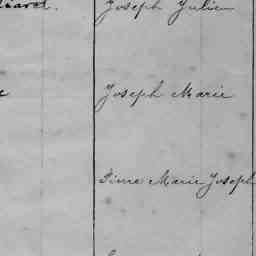 Joseph Julien
Joseph Marie
Pierre Marie Joseph